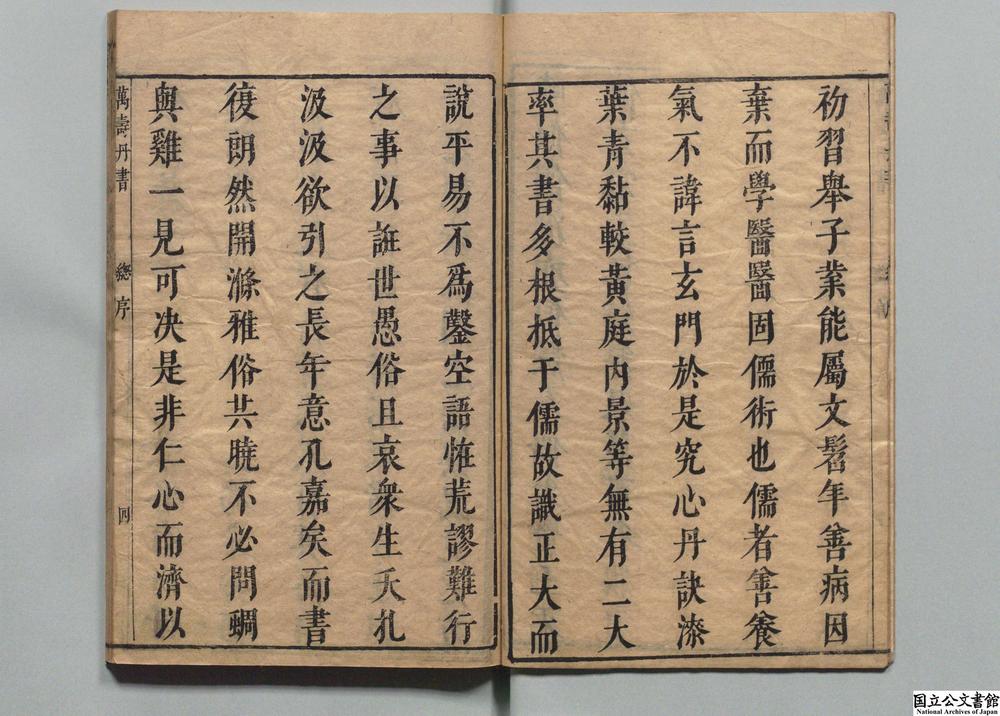 初習舉子業能屬文髫年善病因
棄而學醫醫固儒術也儒者善養
氣不諱言玄門於是究心丹訣漆
葉青黏較黃庭內景等無有二大
率其書多根抵于儒故識正大而
說平易不爲鑿空語惟荒謬難行
之事以誑世愚俗且哀衆生夭札
汲汲欲引之長年意孔嘉矣而書
復朗然開滌雅俗共曉不必問蜩
與雞一見可决是非仁心而濟以
萬壽丹書
總序
四
国立公文書館
National Archives of Japan